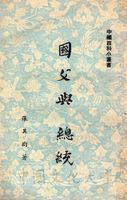 中國百科小叢書
國父與總統
張其昀著